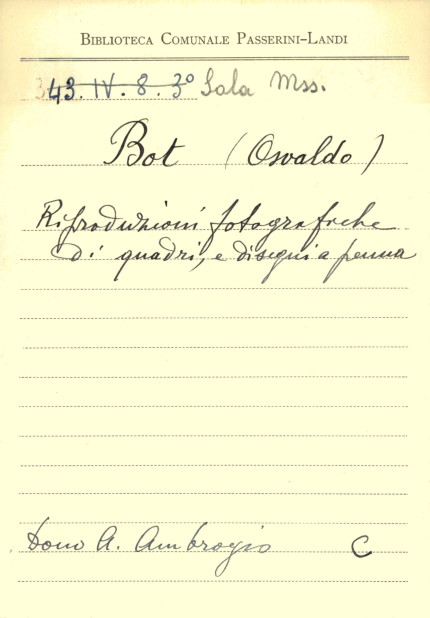 BIBLIOTECA COMUNALE PASSERINI-LANDI
43. IV. 8. 3° Sala Mss.
Bot (Osvaldo)
Riproduzioni fotografiche
di quadri, e disegni a penna
Dono A. Ambrogio C